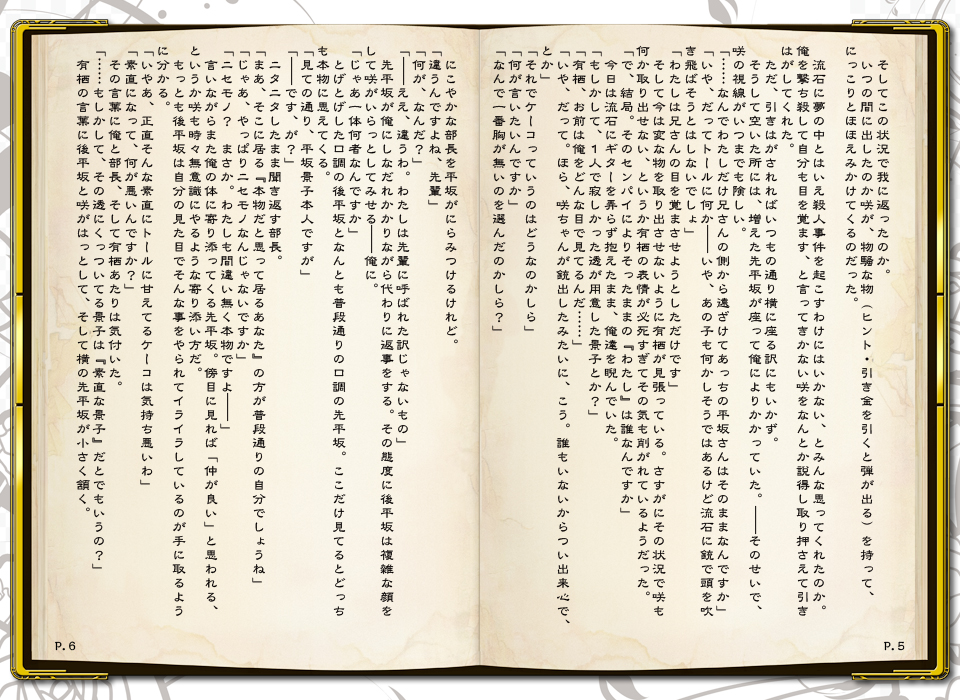 そしてこの状況で我に返ったのか。
いつの間に出したのか咲が、物騒な物（ヒント・引き金を引くと弾が出る）を持って、
にっこりとほほえみかけてくるのだった。
流石に夢の中とはいえ殺人事件を起こすわけにはいかない、とみんな思ってくれたのか。
俺を撃ち殺して自分も目を覚ます、と言ってきかない咲をなんとか説得し取り押さえて引き
はがしてくれた。
ただ、引きはがされればいつもの通り横に座る訳にもいかず。
そうして空いた所には、増えた先平坂が座って俺によりかかっていた。――そのせいで、
咲の視線がいつまでも険しい。
「……なんでわたしだけ兄さんの側から遠ざけてあっちの平坂さんはそのままなんですか」
「いや、だってトールに何か――いや、あの子も何かしそうではあるけど流石に銃で頭を吹
き飛ばそうとはしないでしょ」
「わたしは兄さんの目を覚まさせようとしただけです」
そして今は変な物を取り出させないように有栖が見張っている。さすがにその状況で咲も
何か取り出せない、というか有栖の表情が必死すぎてその気も削がれているようだった。
「で、結局。そのセンパイによりそったままの『わたし』は誰なんですか」
今日は流石にギターを弄らず抱えたまま、俺達を睨んでいた。
「もしかして、１人で寂しかった透が用意した景子とか？」
「有栖、お前は俺をどんな目で見てるんだ……」
「いや、だって。ほら、咲ちゃんが銃出したみたいに、こう。誰もいないからつい出来心で、
とか」
「それでケーコっていうのはどうなのかしら」
「何が言いたいんですか」
「なんで一番胸が無いのを選んだのかしら？」
P.5
にこやかな部長を平坂がにらみつけるけれど。
「違うんですよね、先輩」
「何が、なんだ？」
「――ええ、違うわ。わたしは先輩に呼ばれた訳じゃないもの」
先平坂が俺にしなだれかかりながら代わりに返事をする。その態度に後平坂は複雑な顔を
して咲がいらっとしてみせる――俺に。
「じゃあ一体何者なんですか」
とげとげした口調の後平坂となんとも普段通りの口調の先平坂。ここだけ見てるとどっち
も本物に思えてくる。
「見ての通り、平坂景子本人ですが」
「――です、が？」
ニタニタしたまま聞き返す部長。
「まあ、そこに居る『本物だと思って居るあなた』の方が普段通りの自分でしょうね」
「じゃあ、やっぱりニセモノなんじゃないですか」
「ニセモノ？　まさか。わたしも間違い無く本物ですよ――」
言いながらまた俺の体に寄り添ってくる先平坂。傍目に見れば「仲が良い」と思われる、
というか咲も時々無意識にやるような寄り添い方だ。
もっとも後平坂は自分の見た目でそんな事をやられてイライラしているのが手に取るよう
に分かる。
「いやあ、正直そんな素直にトールに甘えてるケーコは気持ち悪いわ」
「素直になって、何が悪いんですか？」
その言葉に俺と部長、そして有栖あたりは気付いた。
「……もしかして、その透にくっついてる景子は『素直な景子』だとでもいうの？」
有栖の言葉に後平坂と咲がはっとして、そして横の先平坂が小さく頷く。
P.6